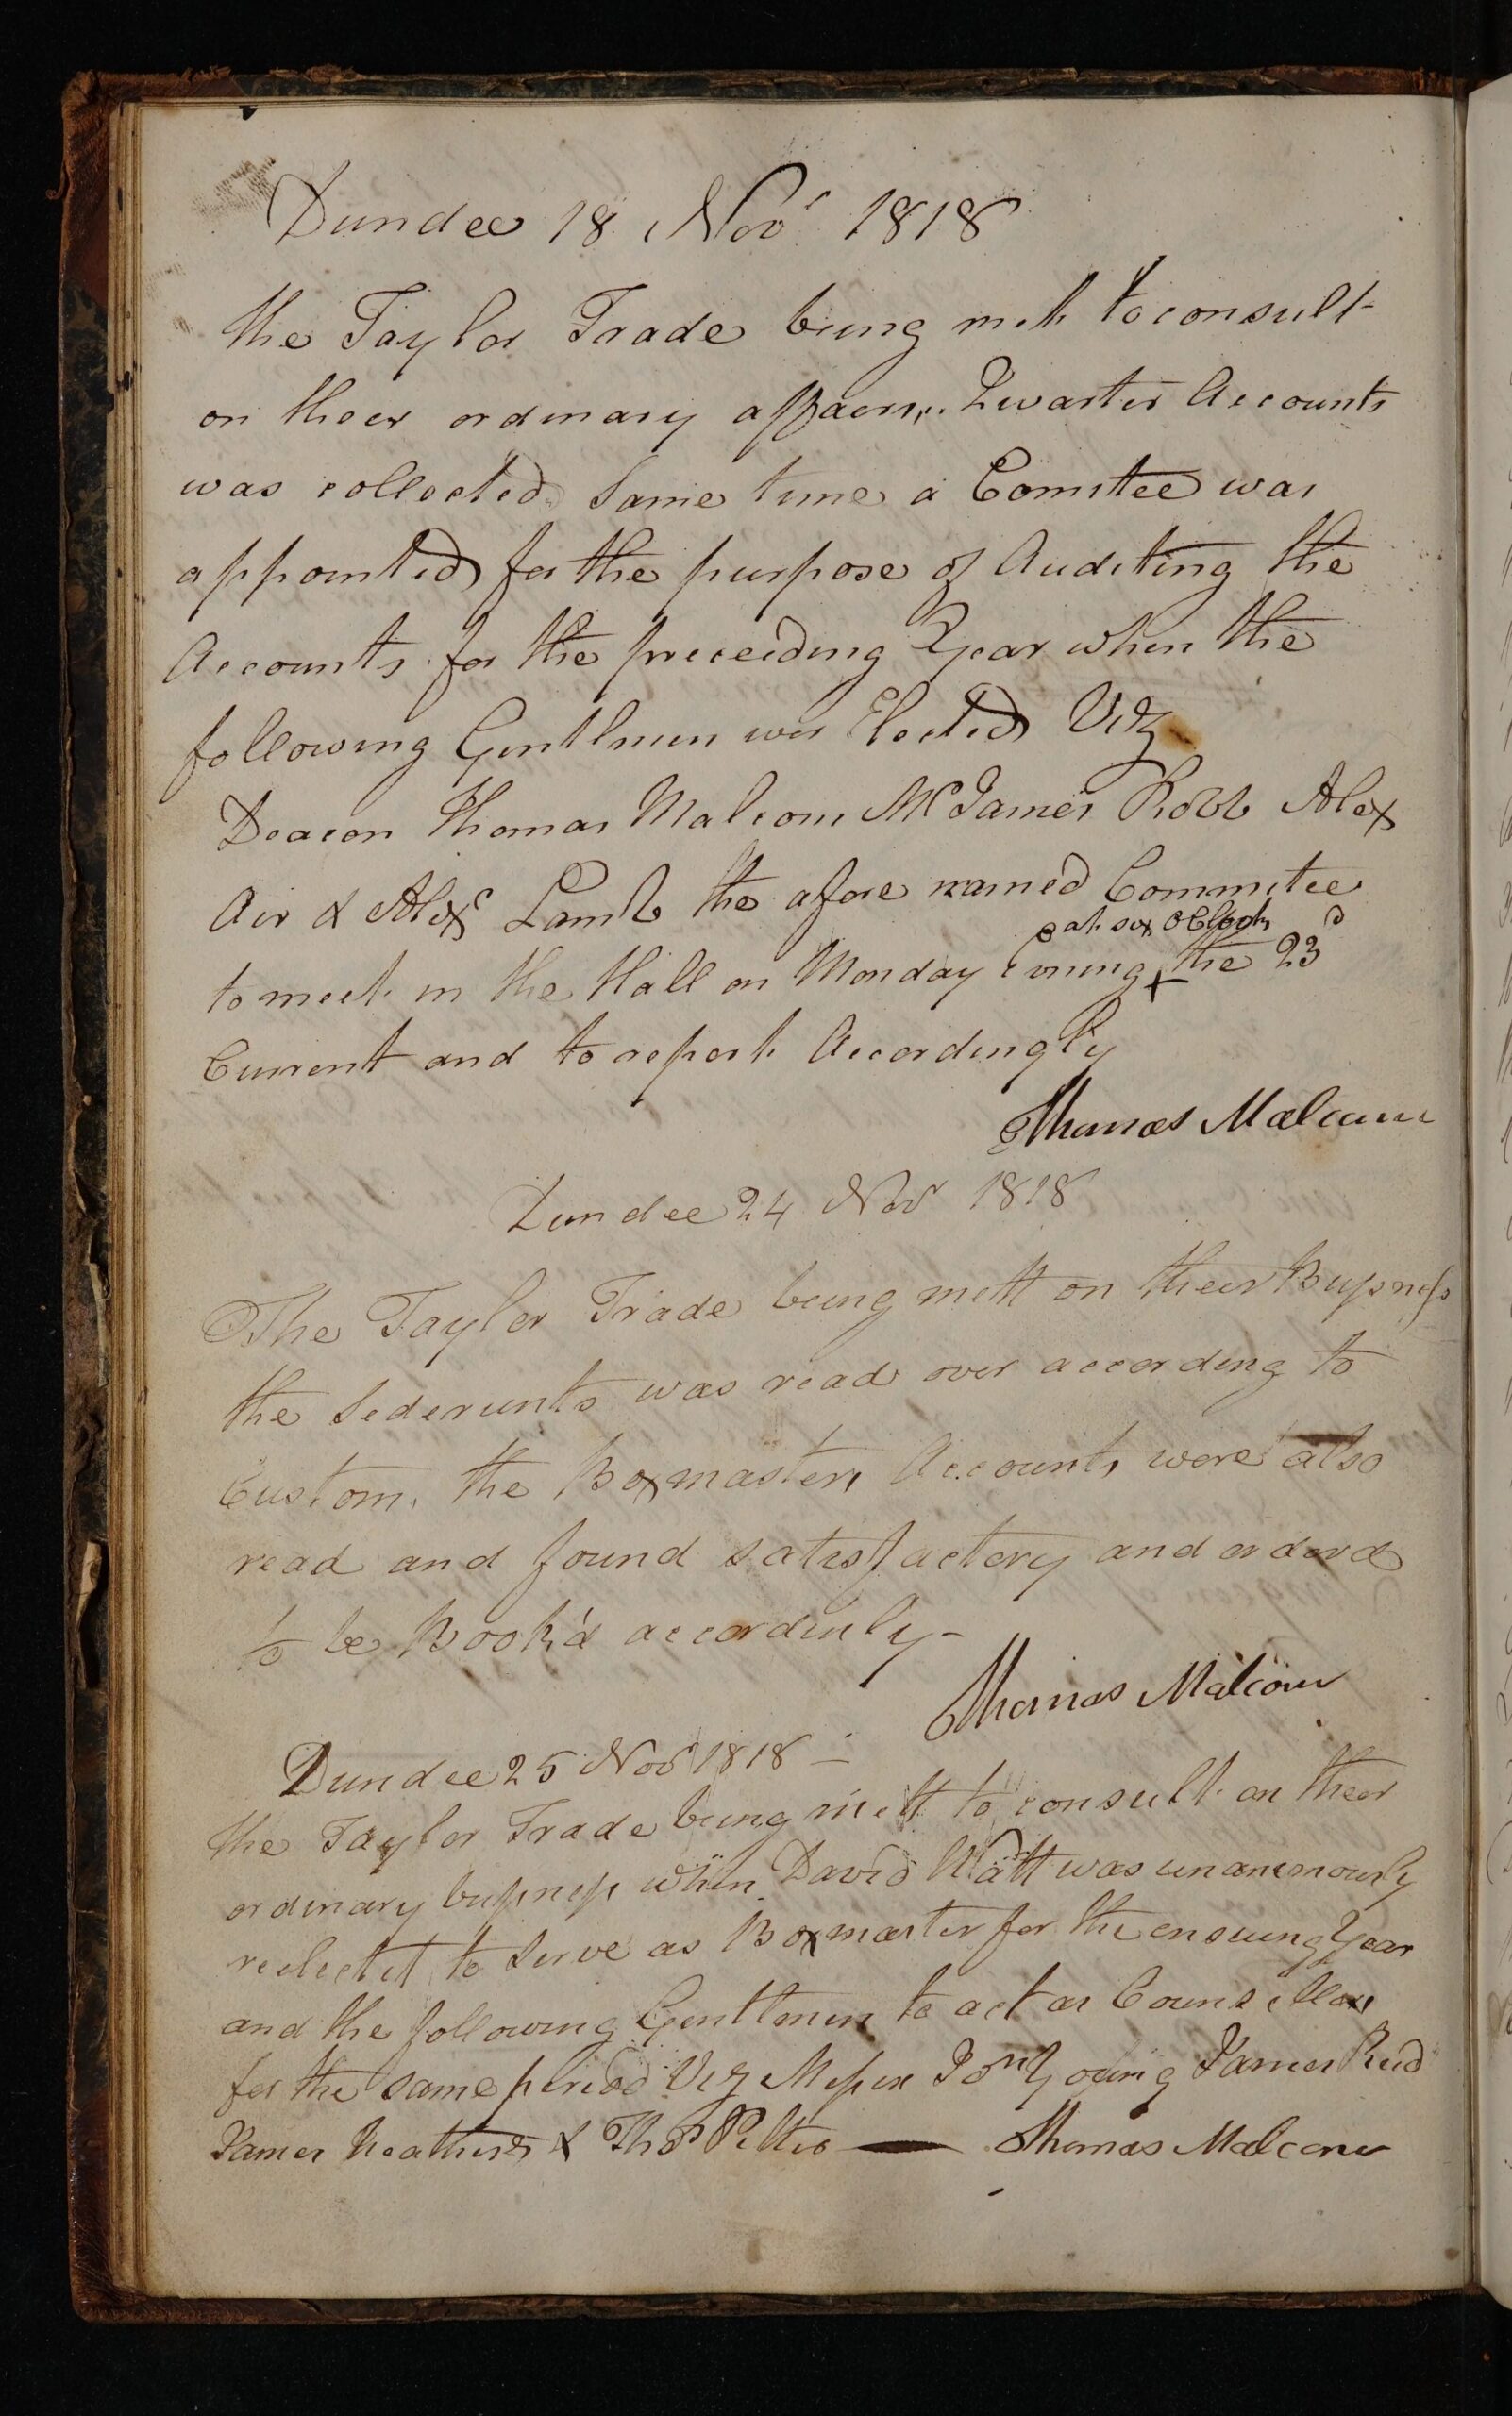 Dundee 18 Novr 1818
the Taylor Trade being mett to consult
on theer ordinary affaers, Quarter Accounts
was collected Same time a Comitee was
appointed for the purpose of Auditing the
Accounts for the preceeding Year when the
following Gentlmen wer Elected Vidz
Deacon Thomas Malcom Mr James Robb Alexr
Air & Alexr Lamb the afore named Committee
at six OClock
to meet in the Hall on Monday evning the 23d
Current and to report Accordingly
Thomas Malcom
Dundee 24 Novr 1818
The Taylor Trade being mett on theer Bussness
the Sederunts was read over according to
Custom, the Boxmasters Accounts were also
read and found satisfactory and orderd
to be Book'd accordinly
Thomas Malcom
Dundee 25 Novr 1818
the Taylor Trade being mett to consult on theer
ordinary bussness when David Watt was unanimously
reelectet to Serve as Boxmaster for the ensueing Year
and the following Gentlmen to act as Counsellors
for the same period Viz Messrs Jon Young James Reid
James & Thos Thomas Malcom